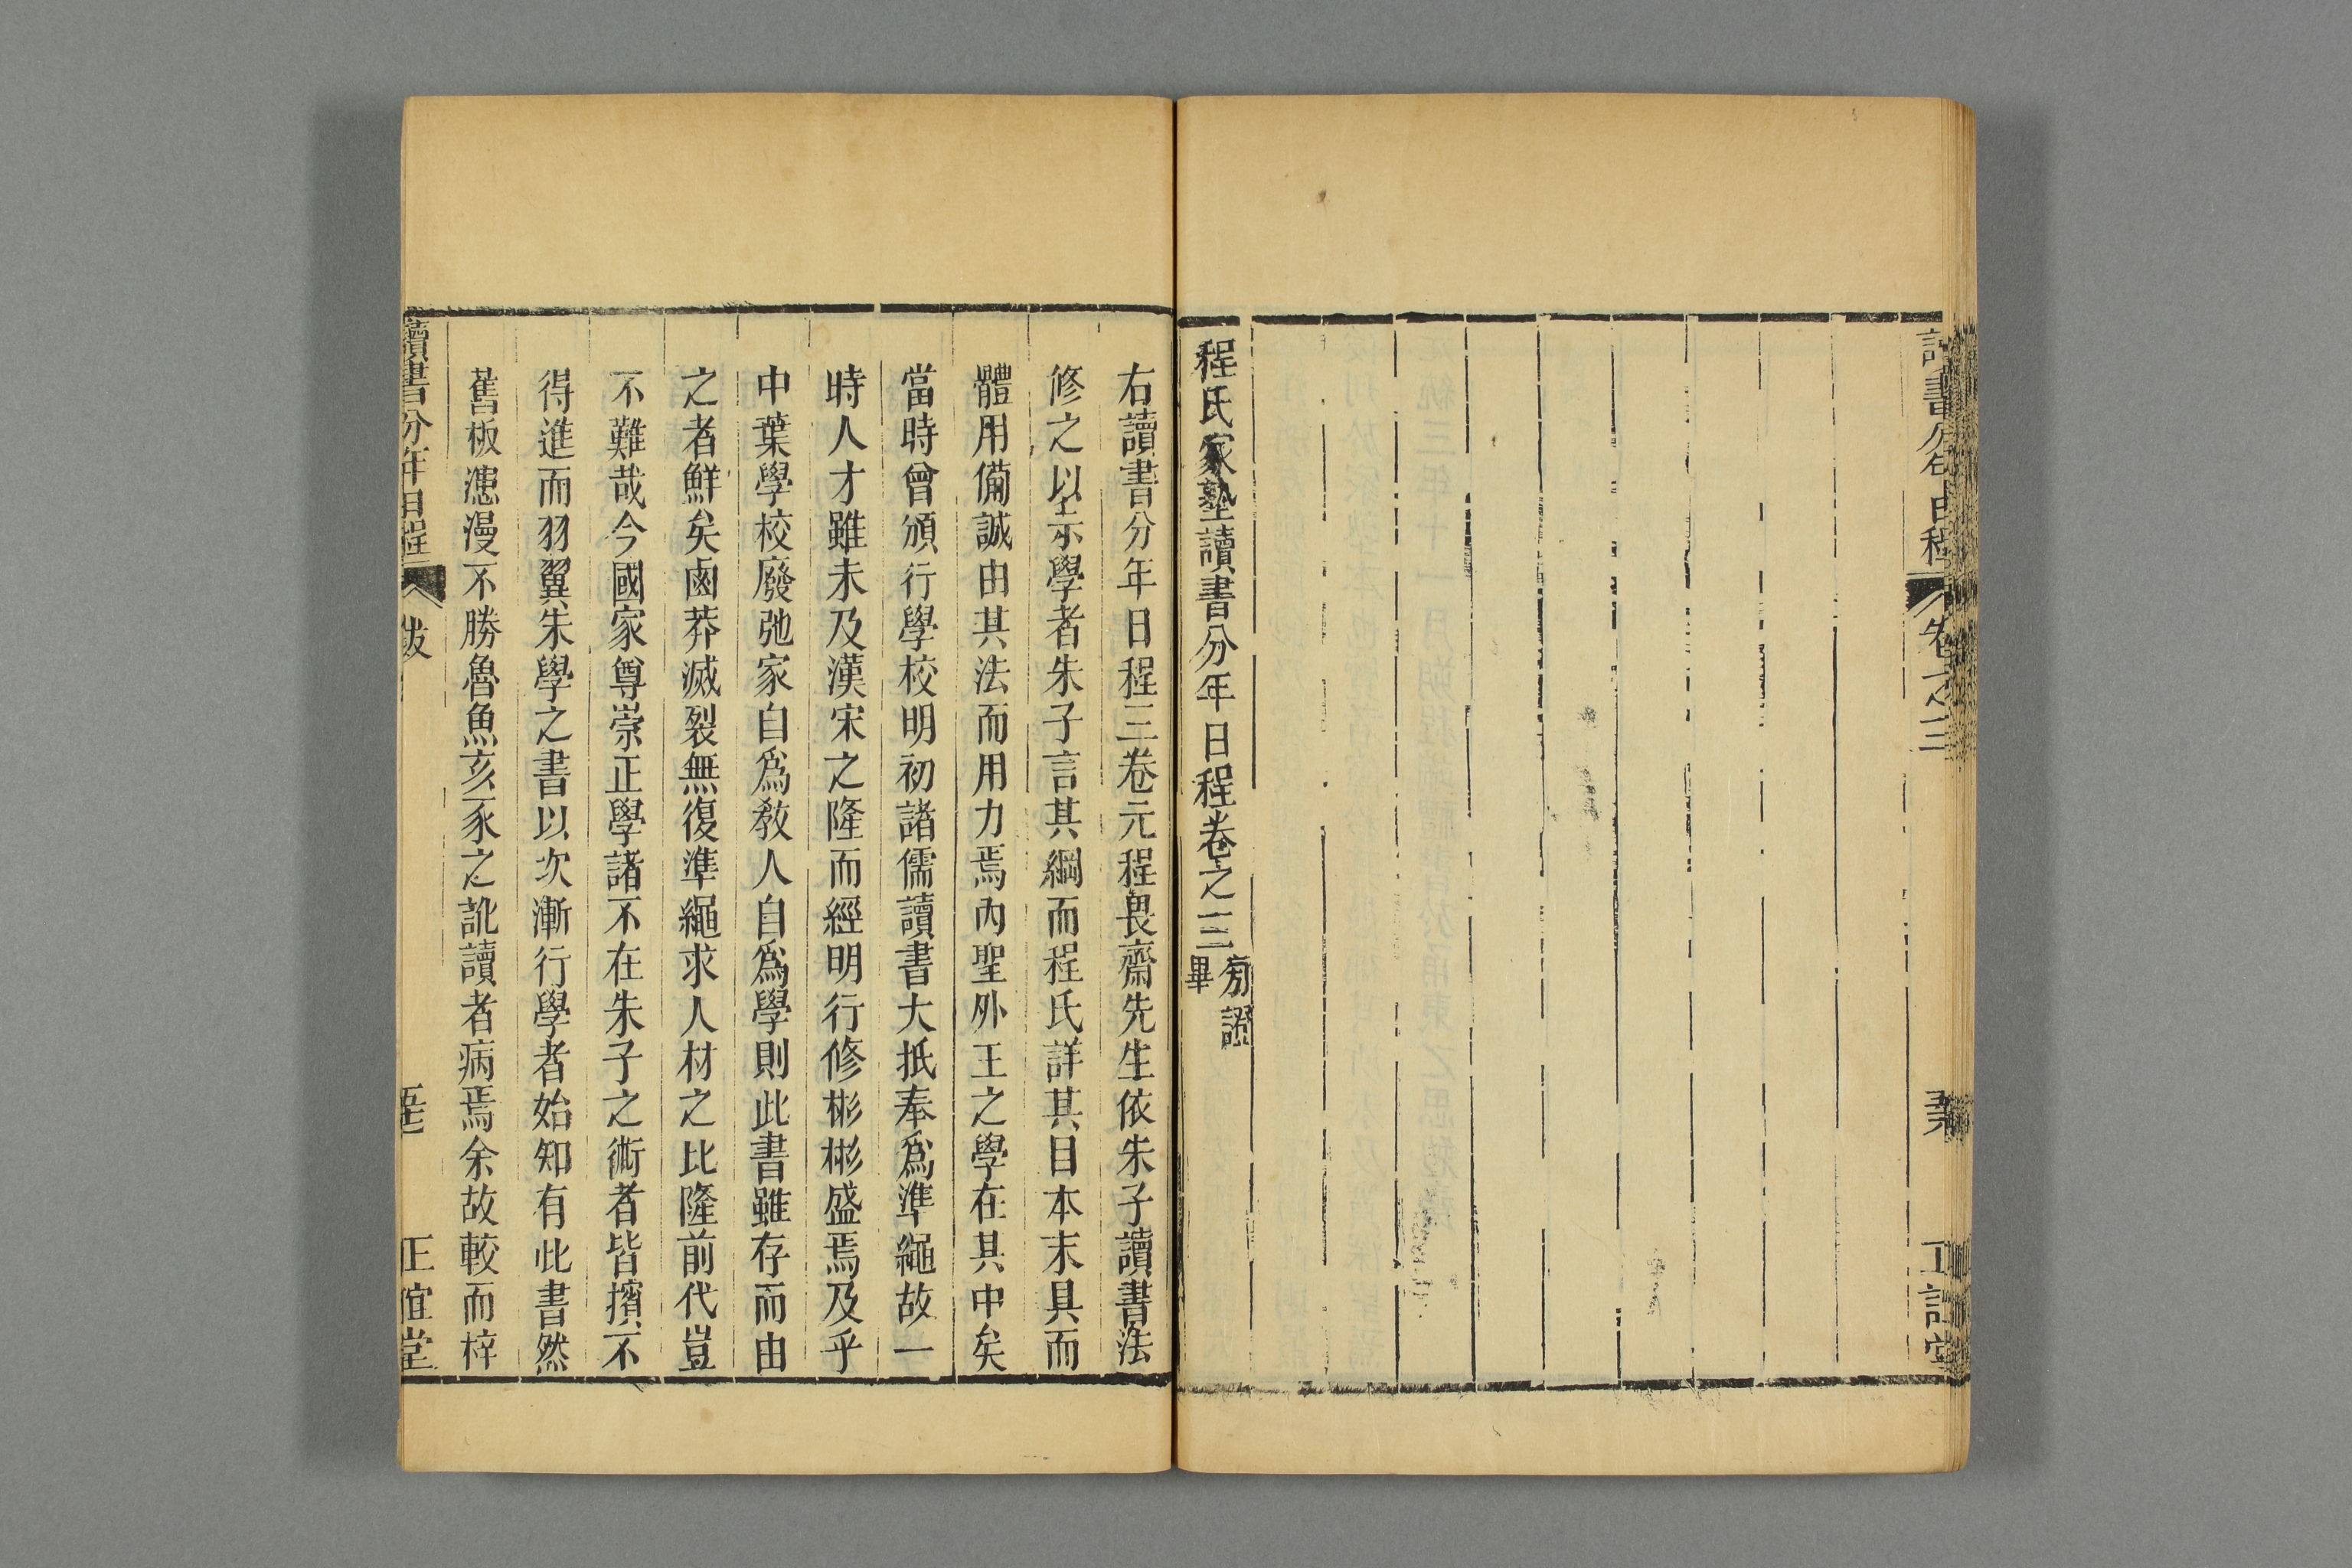 卷之三
程氏家塾讀書分年日程卷之三
旁證
畢
右讀書分年日程三卷元程畏齋先生依朱子讀書法
修之以示學者朱子言其綱而程氏詳其目本末具而
體用備誠由其法而用力焉內聖外王之學在其中矣
當時曾頒行學校明初諸儒讀書大抵奉爲準繩故一
時人才雖未及漢宋之隆而經明行修彬彬盛焉及乎
中葉學校廢弛家自爲敎人自爲學則此書雖存而由
之者鮮矣鹵莽滅裂無復準繩求人材之比隆前代豈
不難哉今國家尊崇正學諸不在朱子之術者皆擯不
得進而羽翼朱學之書以次漸行學者始知有此書然
舊板漶漫不勝魯魚亥豕之訛讀者病焉余故較而梓
讀書分年日程 跋 正誼堂